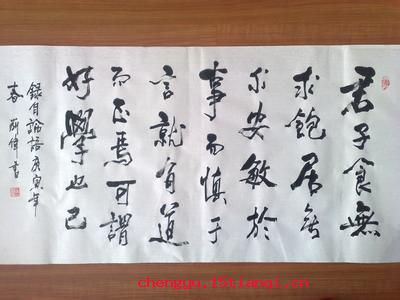 君子食無
求飽居無
求安敏於
事而慎于
言就有道
而正焉可謂
好學也已
錄自論語庚寅年
春 偉書
chengyu.15tianqi.cn